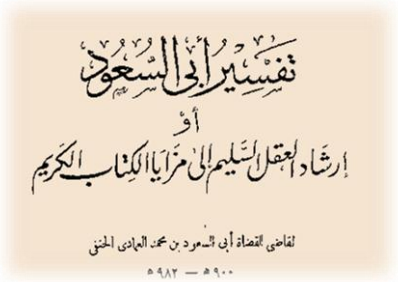 تفسير أبى السعود
أو
إرشاد العقل السليم إلى مزايا الكتاب الكريم
لقاضى القضاة أبى السعود بن محمد العمادى الحنفى
٩٠٠ هـ — ٩٨٢ هـ